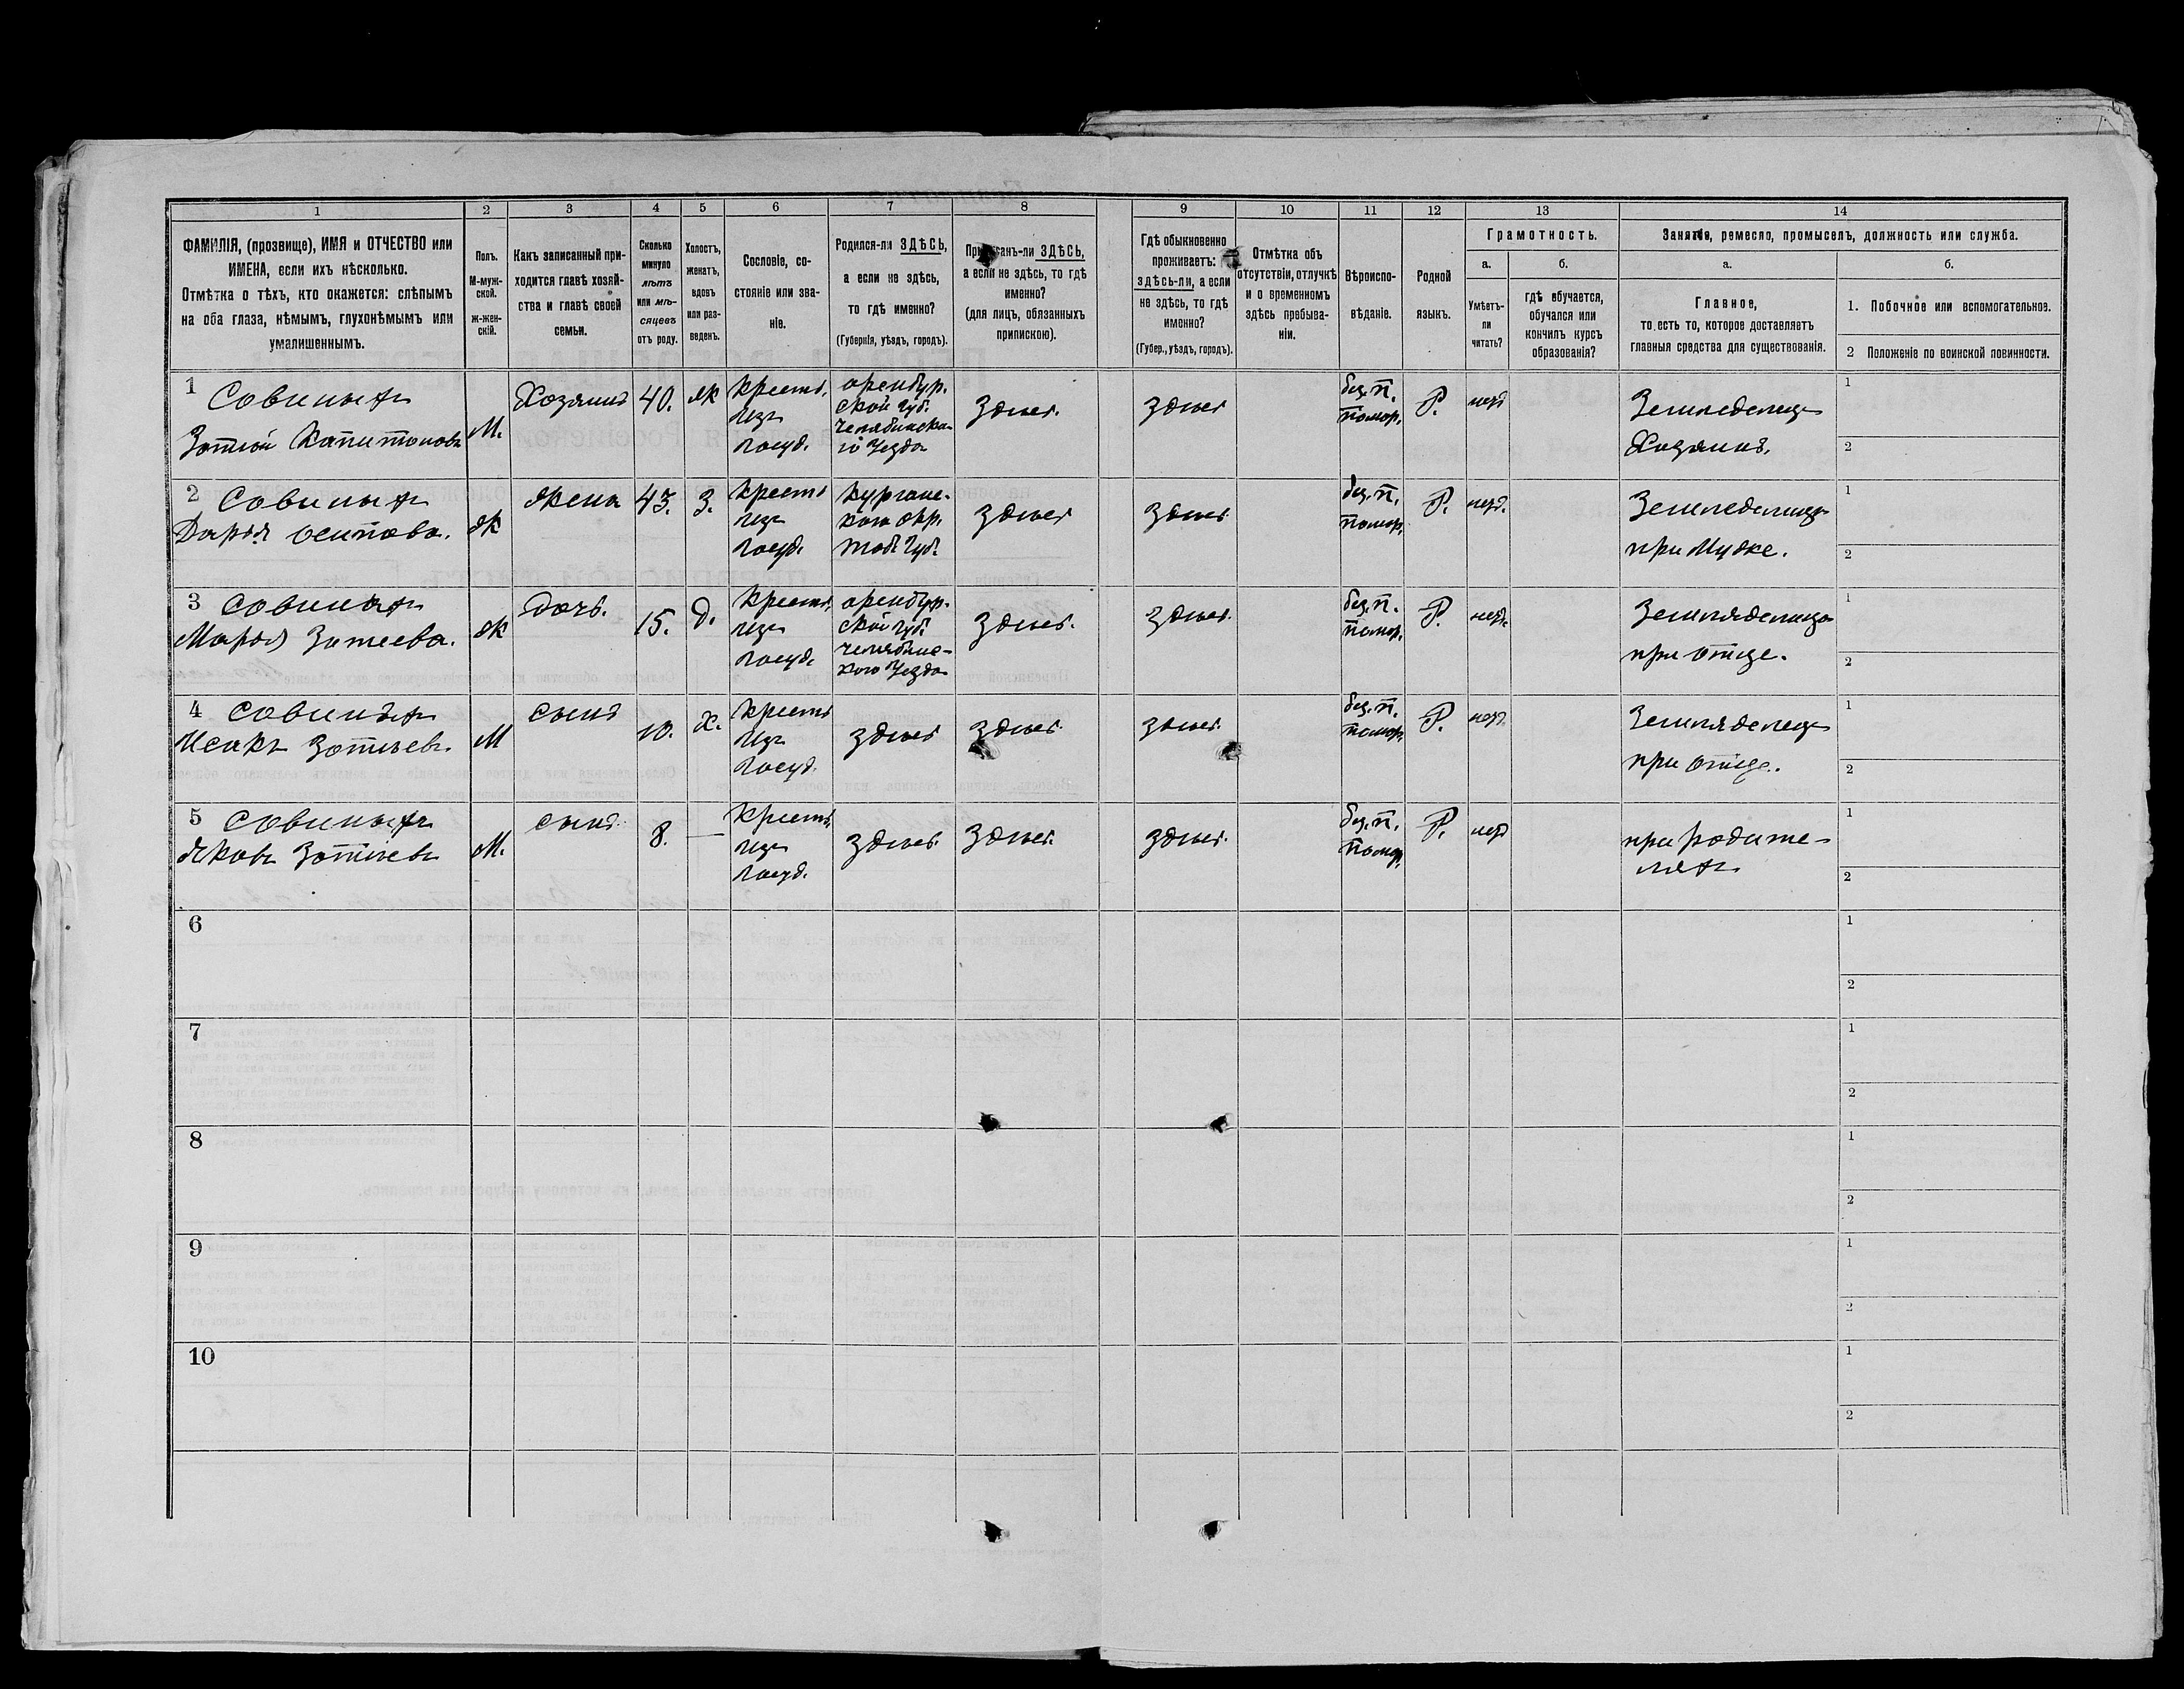 1 2 3 4 5 6 7 8 9 10 11 12 13 14
ФАМИЛІЯ, (прозвище), ИМЯ и ОТЧЕСТВО или
ИМЕНА, если ихъ нѣсколько.
Отмѣтка о тѣхъ, кто окажется: слѣпымъ
на оба глаза, нѣмымъ, глухонѣмымъ или
умалишеннымъ.
Полъ.
М-муж-
ской.
ж-жен-
скій.
Какъ записанный при-
ходится главѣ хозяй-
ства и главѣ своей
семьи.
Сколько
минуло
лѣтъ
или мѣ-
сяцевъ
отъ роду.
Холостъ,
женатъ,
вдовъ
или раз-
веденъ.
Сословіе, со-
стояніе или зва-
ніе.
Родился-ли ЗДѢСЬ,
а если не здѣсь,
то гдѣ именно?
(Губернія, уѣздъ, городъ).
ЗДѢСЬ,
а если не здѣсь, то гдѣ
именно?
(для лицъ, обязанныхъ
припискою).
Гдѣ обыкновенно
проживаетъ:
здѣсь-ли, а если
не здѣсь, то гдѣ
именно?
(Губер., уѣздъ, городъ).
Отмѣтка объ
отсутствіи, отлучкѣ
и о временномъ
здѣсь пребыва-
ніи.
Вѣроиспо-
вѣданіе.
Родной
языкъ.
Грамотность.
а.
Умѣетъ-
ли
читать?
б.
гдѣ обучается,
обучался или
кончилъ курсъ
образованія?
Занятіе, ремесло, промыселъ, должность или служба.
а.
Главное,
то есть то, которое доставляетъ
главныя средства для существованія.
б.
1. Побочное или вспомогательное.
2 Положеніе по воинской повинности.
1 Совиныхъ
Зотѣй Капитоновъ
М.
Хозяинъ
40.
ж
Крест.
изъ
госуд.
оренбур.
ской губ.
Челябинска-
го уезда
здѣсь.
здѣсь
без.п.
помор.
Р.
нетъ
Земледелецъ
Хозяинъ.
1
2
2 Совиныхъ
Дарья осипова.
Ж
жена
43.
З.
Крест
изъ
госуд.
Курганс-
кого окр.
тоб. губ.
здѣсь
здѣсь
без.п.
помор.
Р.
нетъ.
Земледелица
при мужѣ.
1
2
3 Совиныхъ
Марья Зотеева.
Ж
дочь.
15.
д.
Крест.
изъ
госуд.
оренбур.
ской губ.
челябинс-
кого уезда
здѣсь.
здѣсь.
без.п.
помор.
Р.
нетъ.
Земляделица
при отце.
1
2
4 Совиныхъ
Исакъ Зотѣевъ.
М
сынъ
10.
Х.
Крест
изъ
госуд.
здѣсь
здѣсь
здѣсь.
без.п.
помор.
Р.
нетъ
Земляделецъ
при отце.
1
2
5 Совиныхъ
Яковъ Зотѣевъ
М.
сынъ
8.
—
Крест.
изъ
госуд.
здѣсь.
здѣсь.
здѣсь.
без.п.
помор.
Р.
нетъ
при родите-
ляхъ
1
2
6
1
2
7
1
2
8
1
2
9
1
2
10
1
2